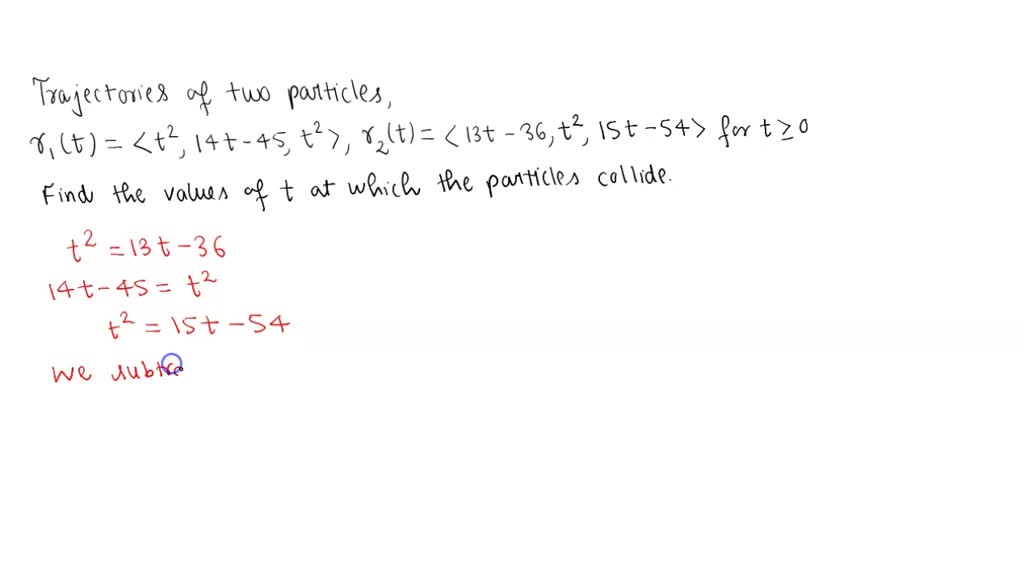 Trajectories of two particles,
r₁(t) = <t², 14t-45, t²>, r₂(t) = <13t-36, t², 15t-54> for t ≥ 0
Find the values of t at which the particles collide.
t² = 13t-36
14t-45 = t²
t² = 15t-54
we subtra